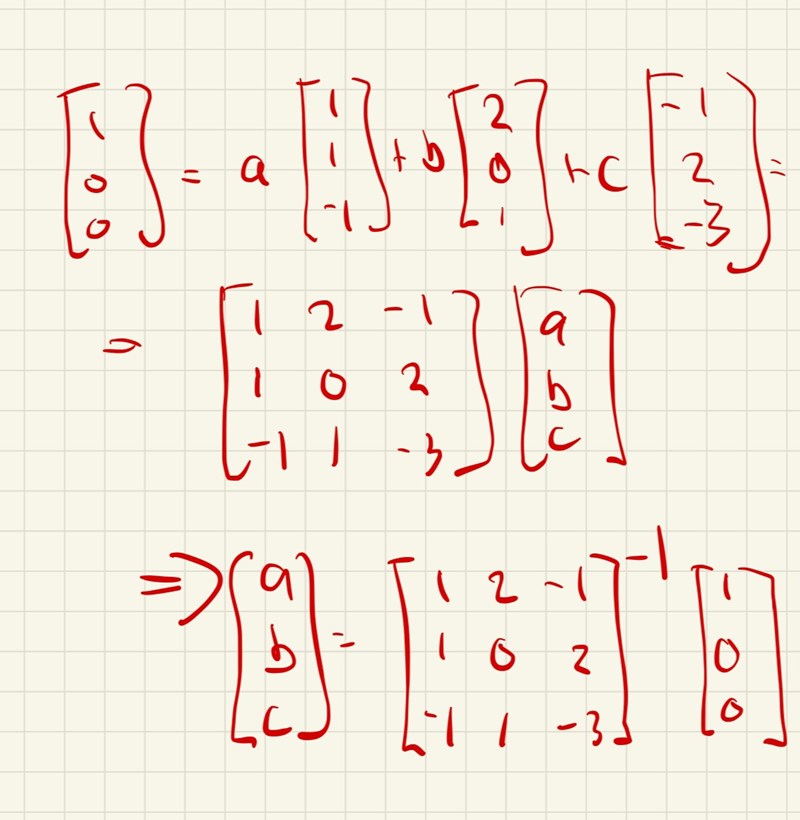 [1 0 0] = a [1 1 -1] + b [2 0 1] + c [-1 2 -3] =
= [1 2 -1; 1 0 2; -1 1 -3] [a b c]
⇒ [a b c] = [1 2 -1; 1 0 2; -1 1 -3]^-1 [1 0 0]